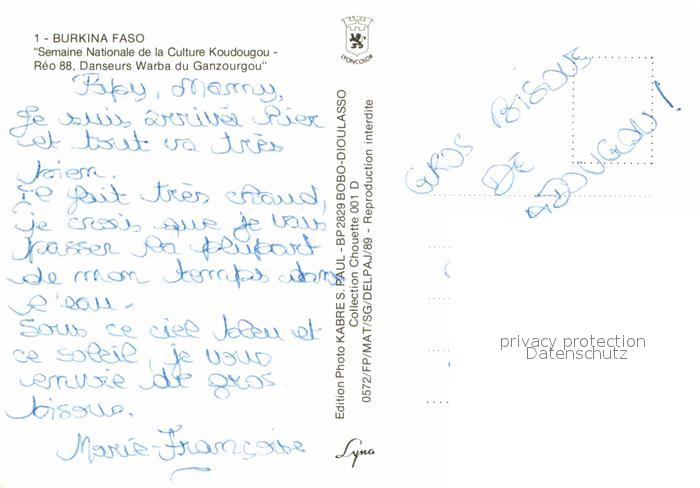 1 - BURKINA FASO
"Semaine Nationale de la Culture Koudougou -
Réo 88, Danseurs Warba du Ganzourgou"
Papy, Mamy,
Je suis arrivée hier
et tout va très
bien.
Il fait très chaud,
je crois que je vais
passer la plupart
de mon temps dans
l'eau.
Sous ce ciel bleu et
ce soleil, je vous
envoie de gros
bisous.
Marie-Françoise
LYONCOLOR
Edition Photo KABRE S. PAUL - BP 2829 BOBO-DIOULASSO
Collection Chouette 001 D
0572/FP/MAT/SG/DELPAJ/89 - Reproduction interdite
Lyna
GROS BISOUS
DE
privacy protection
Datenschutz